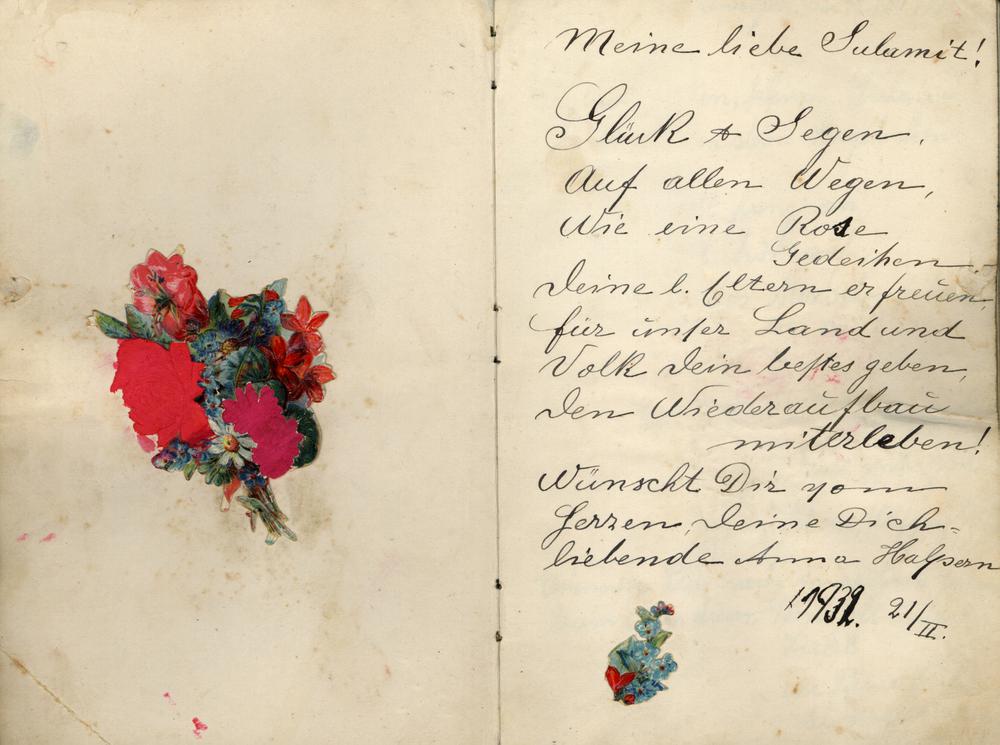 Meine liebe Sulamit!
Glück & Segen,
Auf allen Wegen,
Wie eine Rose
Gedeihen
Deine l. Eltern erfreuen,
für unser Land und
Volk Dein bestes geben,
Den Wiederaufbau
miterleben!
Wünscht Dir vom
Herzen, Deine Dich-
liebende Anna Halpern
1932. 21/II.